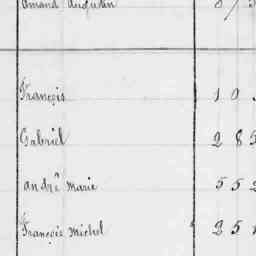 Amand Augustin
François 1 0
Gabriel 2 8 5
André Marie 5 5 2
François Michel 2 5